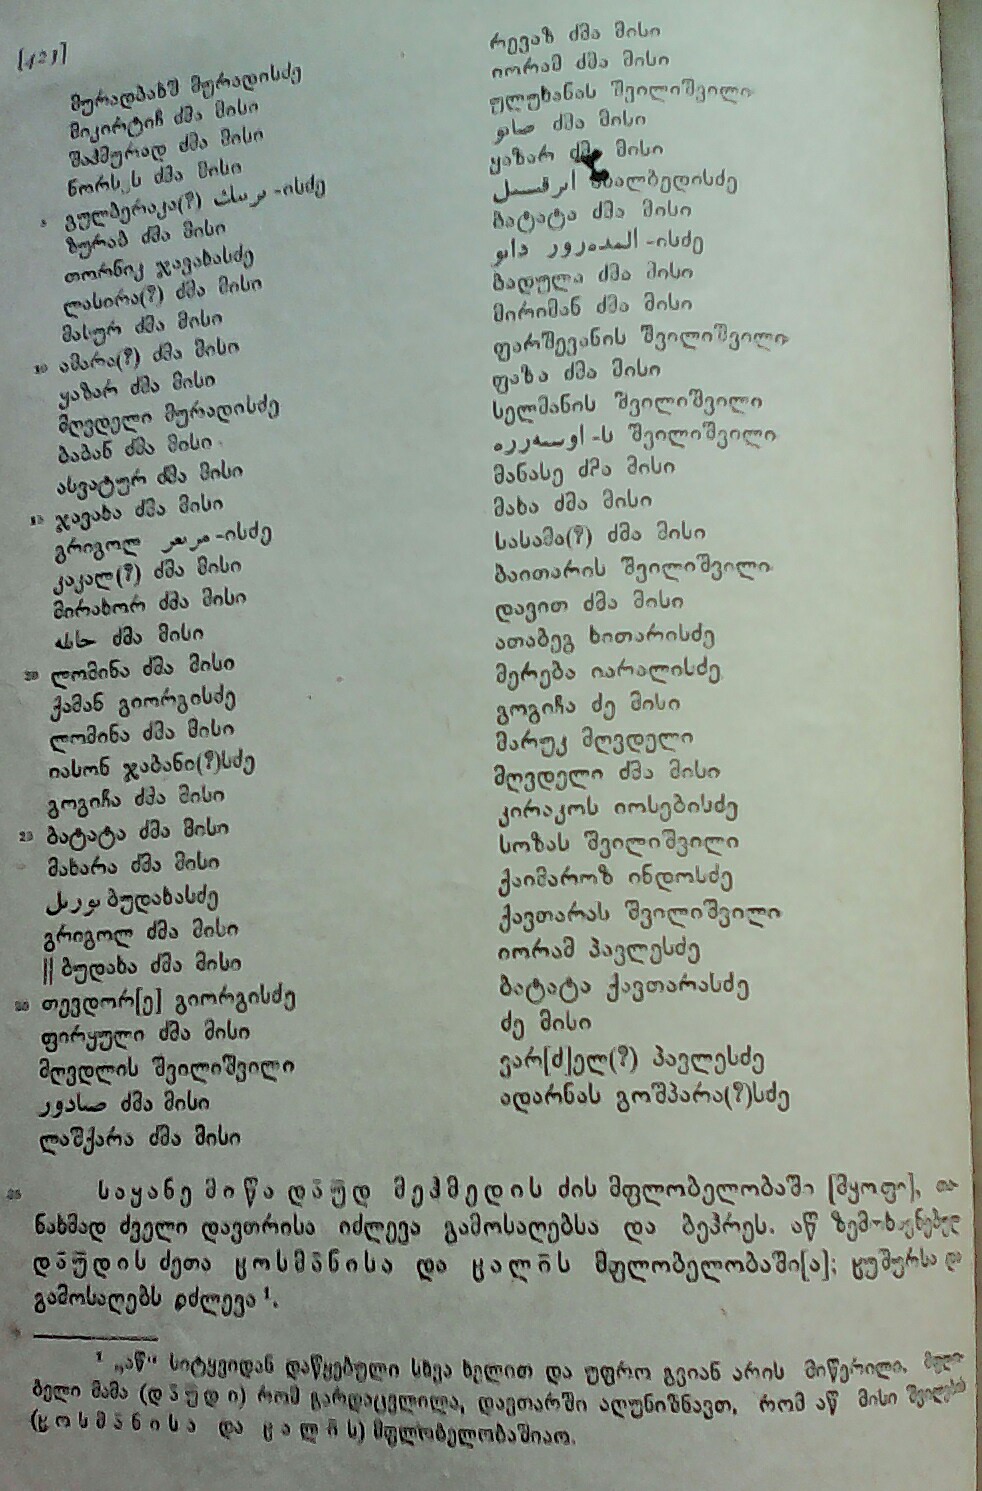 [423]
მურადბახშ მურადისძე
მიკირტიჩ ძმა მისი
შაჰმურად ძმა მისი
ნორსეს ძმა მისი
5 გულბერაკა(?) -ისძე
ზურაბ ძმა მისი
თორნიკ ჯავახასძე
ლასირა(?) ძმა მისი
მასურ ძმა მისი
10 ამარა(?) ძმა მისი
ყაზარ ძმა მისი
მღვდელი მურადისძე
ბაბან ძმა მისი
ასვატურ ძმა მისი
15 ჯავახა ძმა მისი
გრიგოლ -ისძე
კაკალ(?) ძმა მისი
მირახორ ძმა მისი
ძმა მისი
20 ლომინა ძმა მისი
ქამან გიორგისძე
ლომინა ძმა მისი
იასონ ჯაბანი(?)სძე
გოგიჩა ძმა მისი
25 ბატატა ძმა მისი
მახარა ძმა მისი
ბუდახასძე
გრიგოლ ძმა მისი
|| ბუდახა ძმა მისი
30 თევდორ[ე] გიორგისძე
ფირყული ძმა მისი
მღვდლის შვილიშვილი
صادور ძმა მისი
ლაშქარა ძმა მისი
რევაზ ძმა მისი
იორამ ძმა მისი
ულუხანას შვილიშვილი
ძმა მისი
ყაზარ ძმა მისი
აბალბედისძე
ბატატა ძმა მისი
-ისძე
ბადულა ძმა მისი
მირიმან ძმა მისი
ფარშევანის შვილიშვილი
ფაზა ძმა მისი
სელმანის შვილიშვილი
-ს შვილიშვილი
მანასე ძმა მისი
მახა ძმა მისი
სასამა(?) ძმა მისი
ბაითარის შვილიშვილი
დავით ძმა მისი
ათაბეგ ხითარისძე
მერება იარალისძე
გოგიჩა ძე მისი
მარუკ მღვდელი
მღვდელი ძმა მისი
კირაკოს იოსებისძე
სოზას შვილიშვილი
ქაიმაროზ ინდოსძე
ქავთარას შვილიშვილი
იორამ პავლესძე
ბატატა ქავთარასძე
ძე მისი
ვარ[ძ]ელ(?) პავლესძე
ადარნას გოშპარა(?)სძე
35 საყანე მიწა დāუ̄დ მეჰმედის ძის მფლობელობაში [მყოფი], თა-
ნახმად ძველი დავთრისა იძლევა გამოსაღებსა და ბეჰრეს. აწ ზემოხსენებულ
დāუ̄დის ძეთა ჺოსმāნისა და ჺალი̄ს მფლობელობაში[ა]; ჺუშურსა და
გამოსაღებს იძლევა¹.
¹ „აწ“ სიტყვიდან დაწყებული სხვა ხელით და უფრო გვიან არის მიწერილი. მფლო-
ბელი მამა (დāუ̄დი) რომ გარდაცვლილა, დავთარში აღუნიშნავთ, რომ აწ მისი შვილების
(ჺოსმāნისა და ჺალი̄ს) მფლობელობაშიაო.